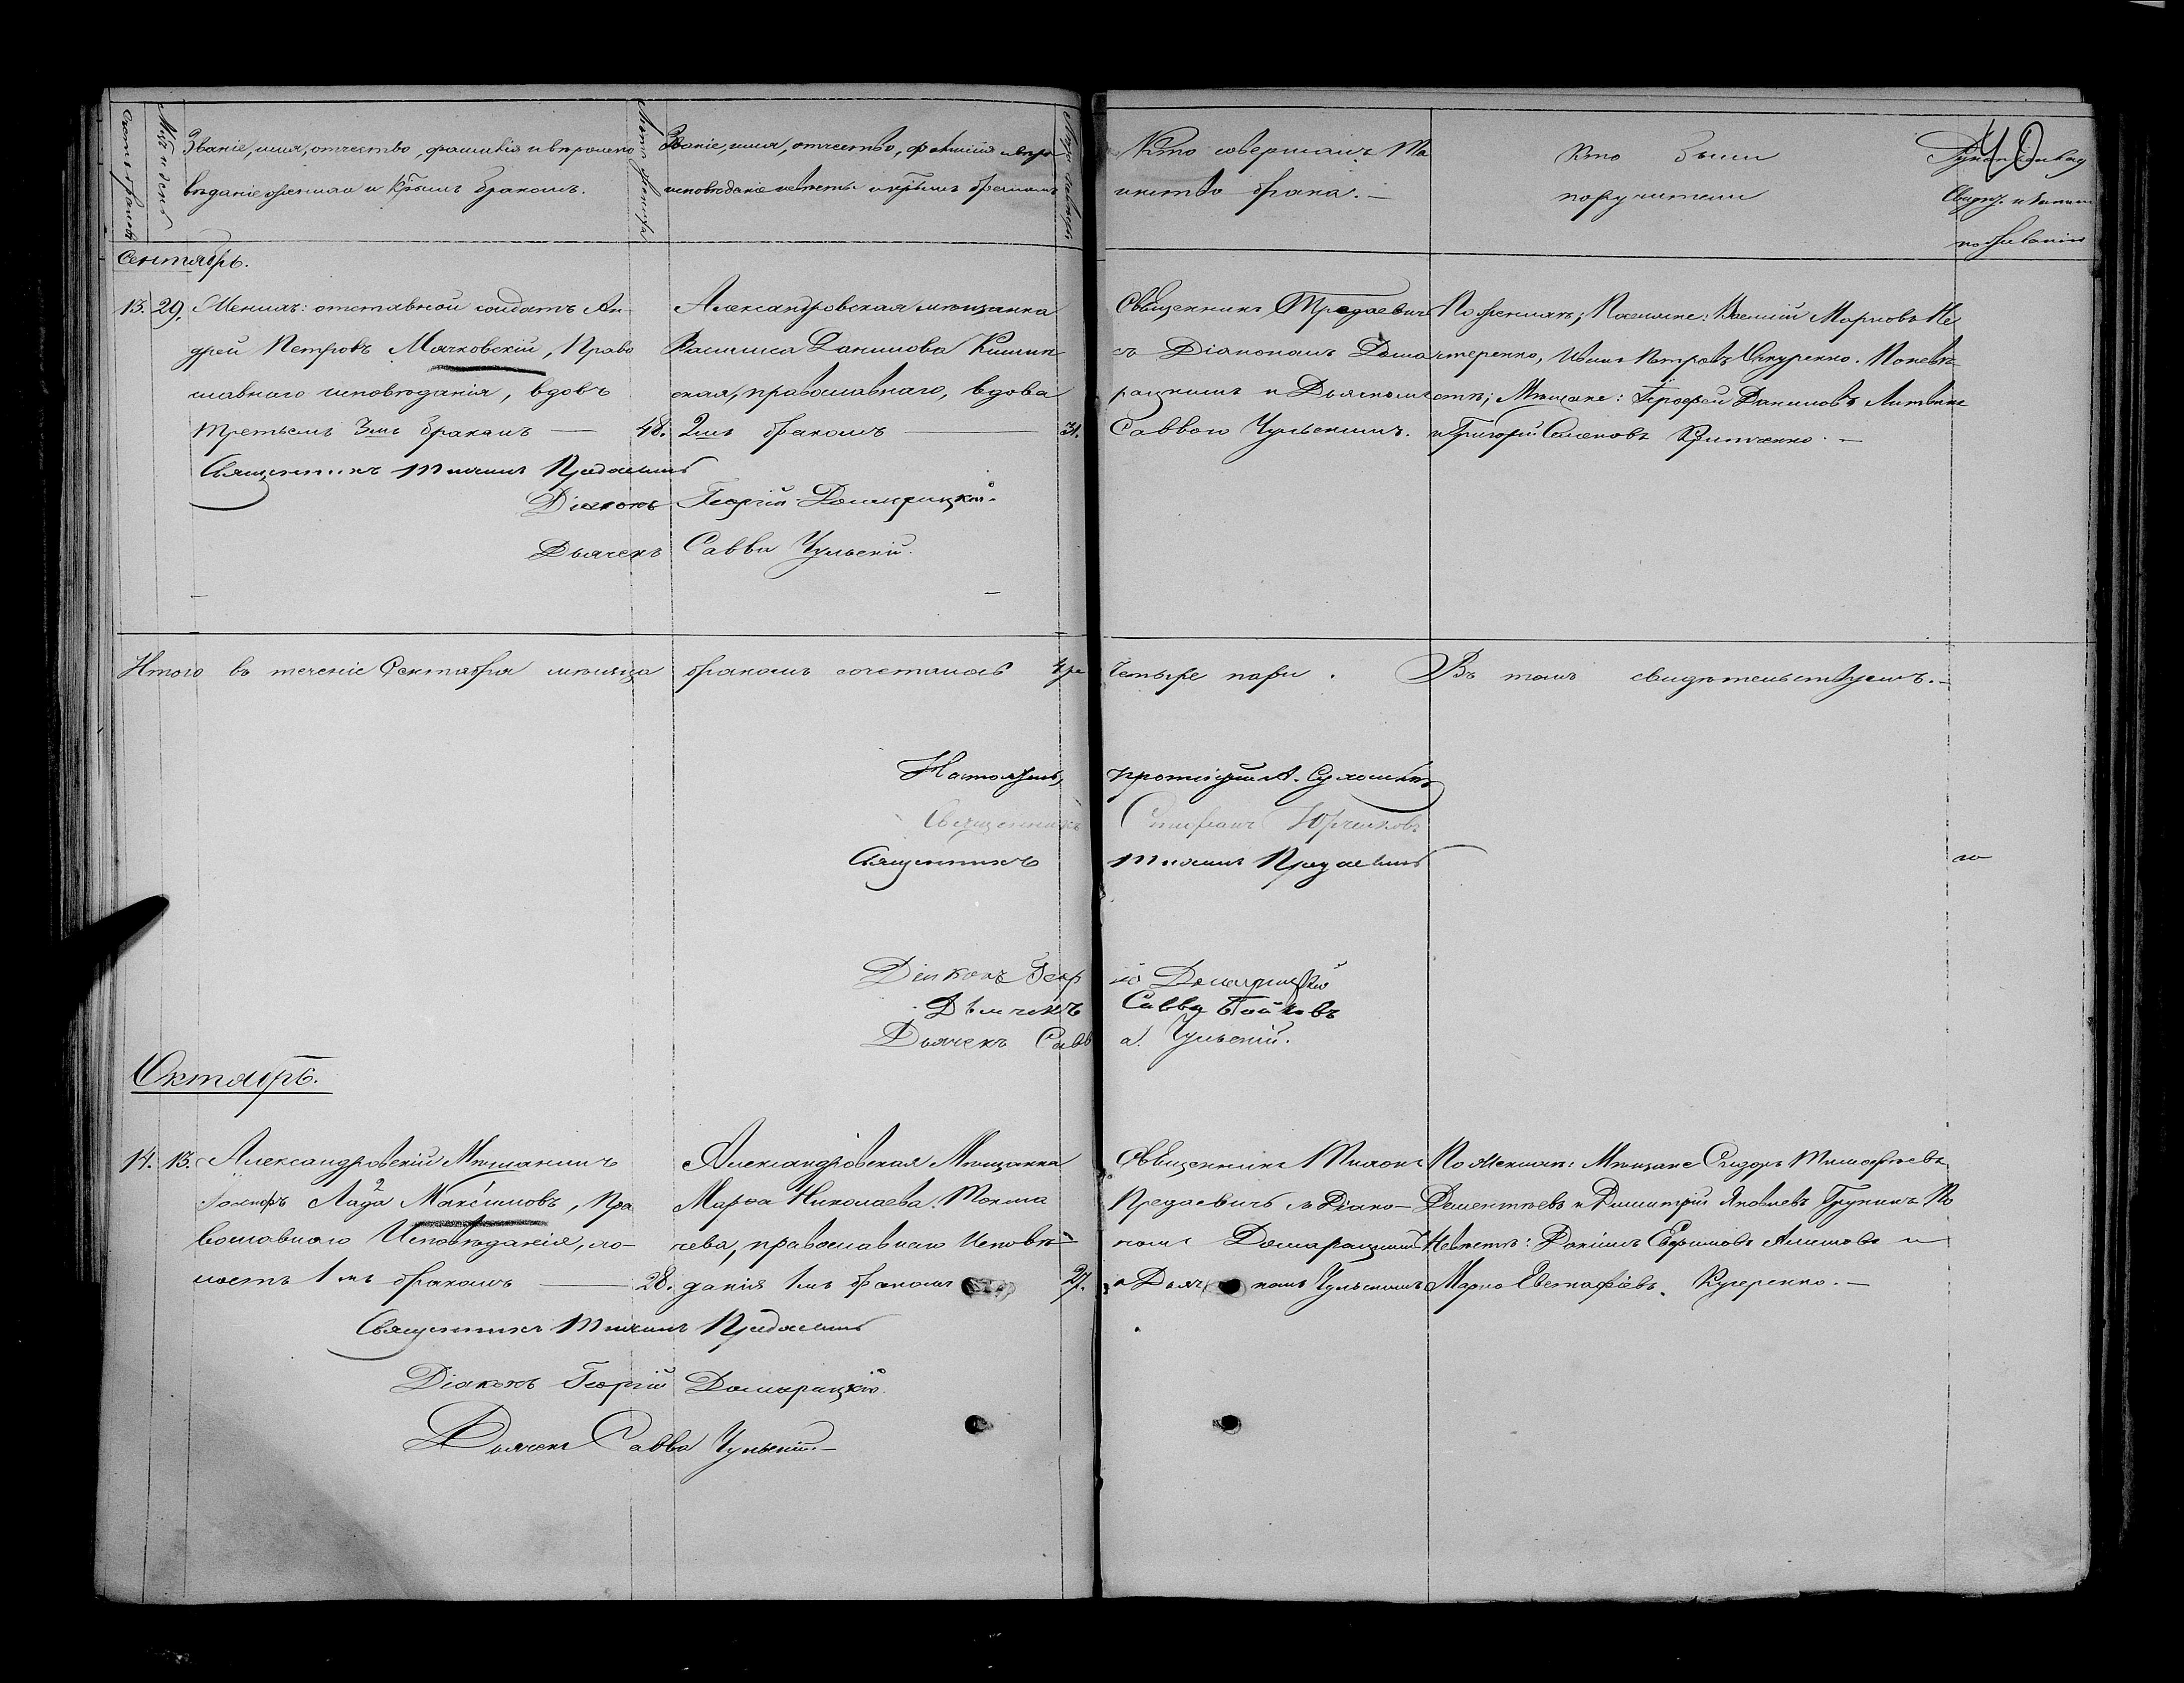 40
Счетъ браковъ
Мцъ и день
Званіе, имя, отчество, фамилія и вѣроиспо
вѣданіе жениха и кѣмъ бракомъ.
Лѣта жениха
Званіе, имя, отчество, фамилія и вѣро
исповѣданіе невѣсты и кѣмъ бракомъ
Лѣта невѣсты
Кто совершалъ Та
инство брака. —
Кто были
поручители
Свидѣт. и записи
по желанію
Сентябрь.
13. 29. Женихъ: отставной солдатъ Ан-
дрей Петровъ Мачковскій, Право
славнаго исповѣданія, вдовъ
третьемъ 3мъ бракомъ — 48.
Александровская мѣщанка
Василиса Данилова
ская, православнаго, вдова
2мъ бракомъ — 31.
Священникъ Предаевичъ
съ Діакономъ Дома
рацкимъ и Дьячкомъ
Саввою Чульскимъ.
По женихѣ; Поселяне: Василій Марковъ Не
стеренко, Иванъ Петровъ. По невѣ
стѣ; Мѣщане: Ерофей Даниловъ
и Григорій Семеновъ —
Священникъ Тихонъ Предаевичъ
Діаконъ Георгій Домарацкій.
Дьячекъ Савва Чульскій.
Итого въ теченіе Сентября мѣсяца бракомъ сочеталось 4ре четыре пары. Въ томъ свидѣтельствуемъ. —
Настоятель, протоіерей А.
Священникъ Стефанъ Юрченковъ
Священникъ Тихонъ Предаевичъ
Діаконъ Георгій Домарацкій
Дьячекъ Савва Бойковъ
Дьячекъ Савва Чульскій.
Октябрь.
14. 13. Александровскій Мѣщанинъ
Іосифъ Лада Максимовъ, Пра
вославнаго Исповѣданія, хо-
лостъ 1мъ бракомъ — 28.
Александровская Мѣщанка
Марѳа Николаева Токма
чева, православнаго Исповѣ-
данія 1мъ бракомъ 27.
Священникъ Тихонъ
Предаевичъ съ Діако-
номъ Домарацкимъ
и Дьячкомъ Чульскимъ
По Женихѣ: Мѣщане Сидоръ Тимофѣевъ
Дементьевъ и Димитрій Яковлевъ По
Невѣстѣ: Даніилъ Ефимовъ и
Марко Евстафіевъ Кучеренко. —
Священникъ Тихонъ Предаевичъ
Діаконъ Георгій Домарацкій.
Дьячекъ Савва Чульскій. —